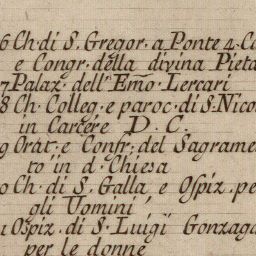 6 Ch. di S. Gregor. a Ponte 4. Ca
e Congr. della divina Pieta
7 Palaz. dell' Emo Lercari
8 Ch. Colleg. e paroc. di S. Nico
in Carcere D. C.
9 Orat. e Confr. del Sagrame
to in d. Chiesa
0 Ch. di S. Galla e Ospiz. pe
gli Uomini
1 Ospiz. di S. Luigi Gonzaga
per le donne